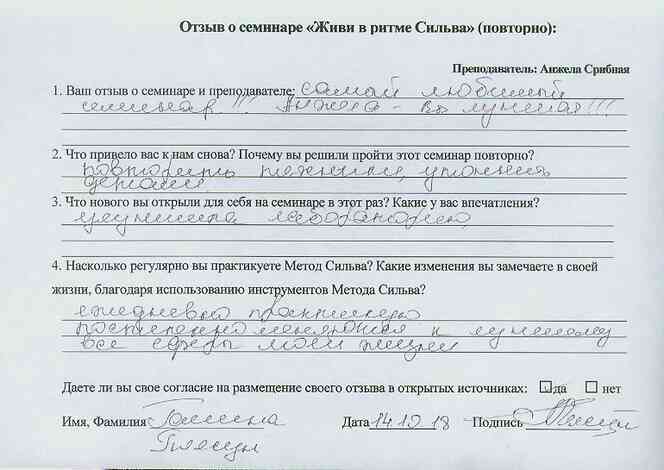 Отзыв о семинаре «Живи в ритме Сильва» (повторно):
Преподаватель: Анжела Срибная
1. Ваш отзыв о семинаре и преподавателе: самый любимый
семинар !!! Анжела - Вы лучшая!!!
2. Что привело вас к нам снова? Почему вы решили пройти этот семинар повторно?
повторить техники, уточнить
детали
3. Что нового вы открыли для себя на семинаре в этот раз? Какие у вас впечатления?
улучшила лабораторию
4. Насколько регулярно вы практикуете Метод Сильва? Какие изменения вы замечаете в своей
жизни, благодаря использованию инструментов Метода Сильва?
ежедневно практикую
постепенно меняются к лучшему
все сферы моей жизни
Даете ли вы свое согласие на размещение своего отзыва в открытых источниках: да нет
Имя, Фамилия Галина Дата Подпись